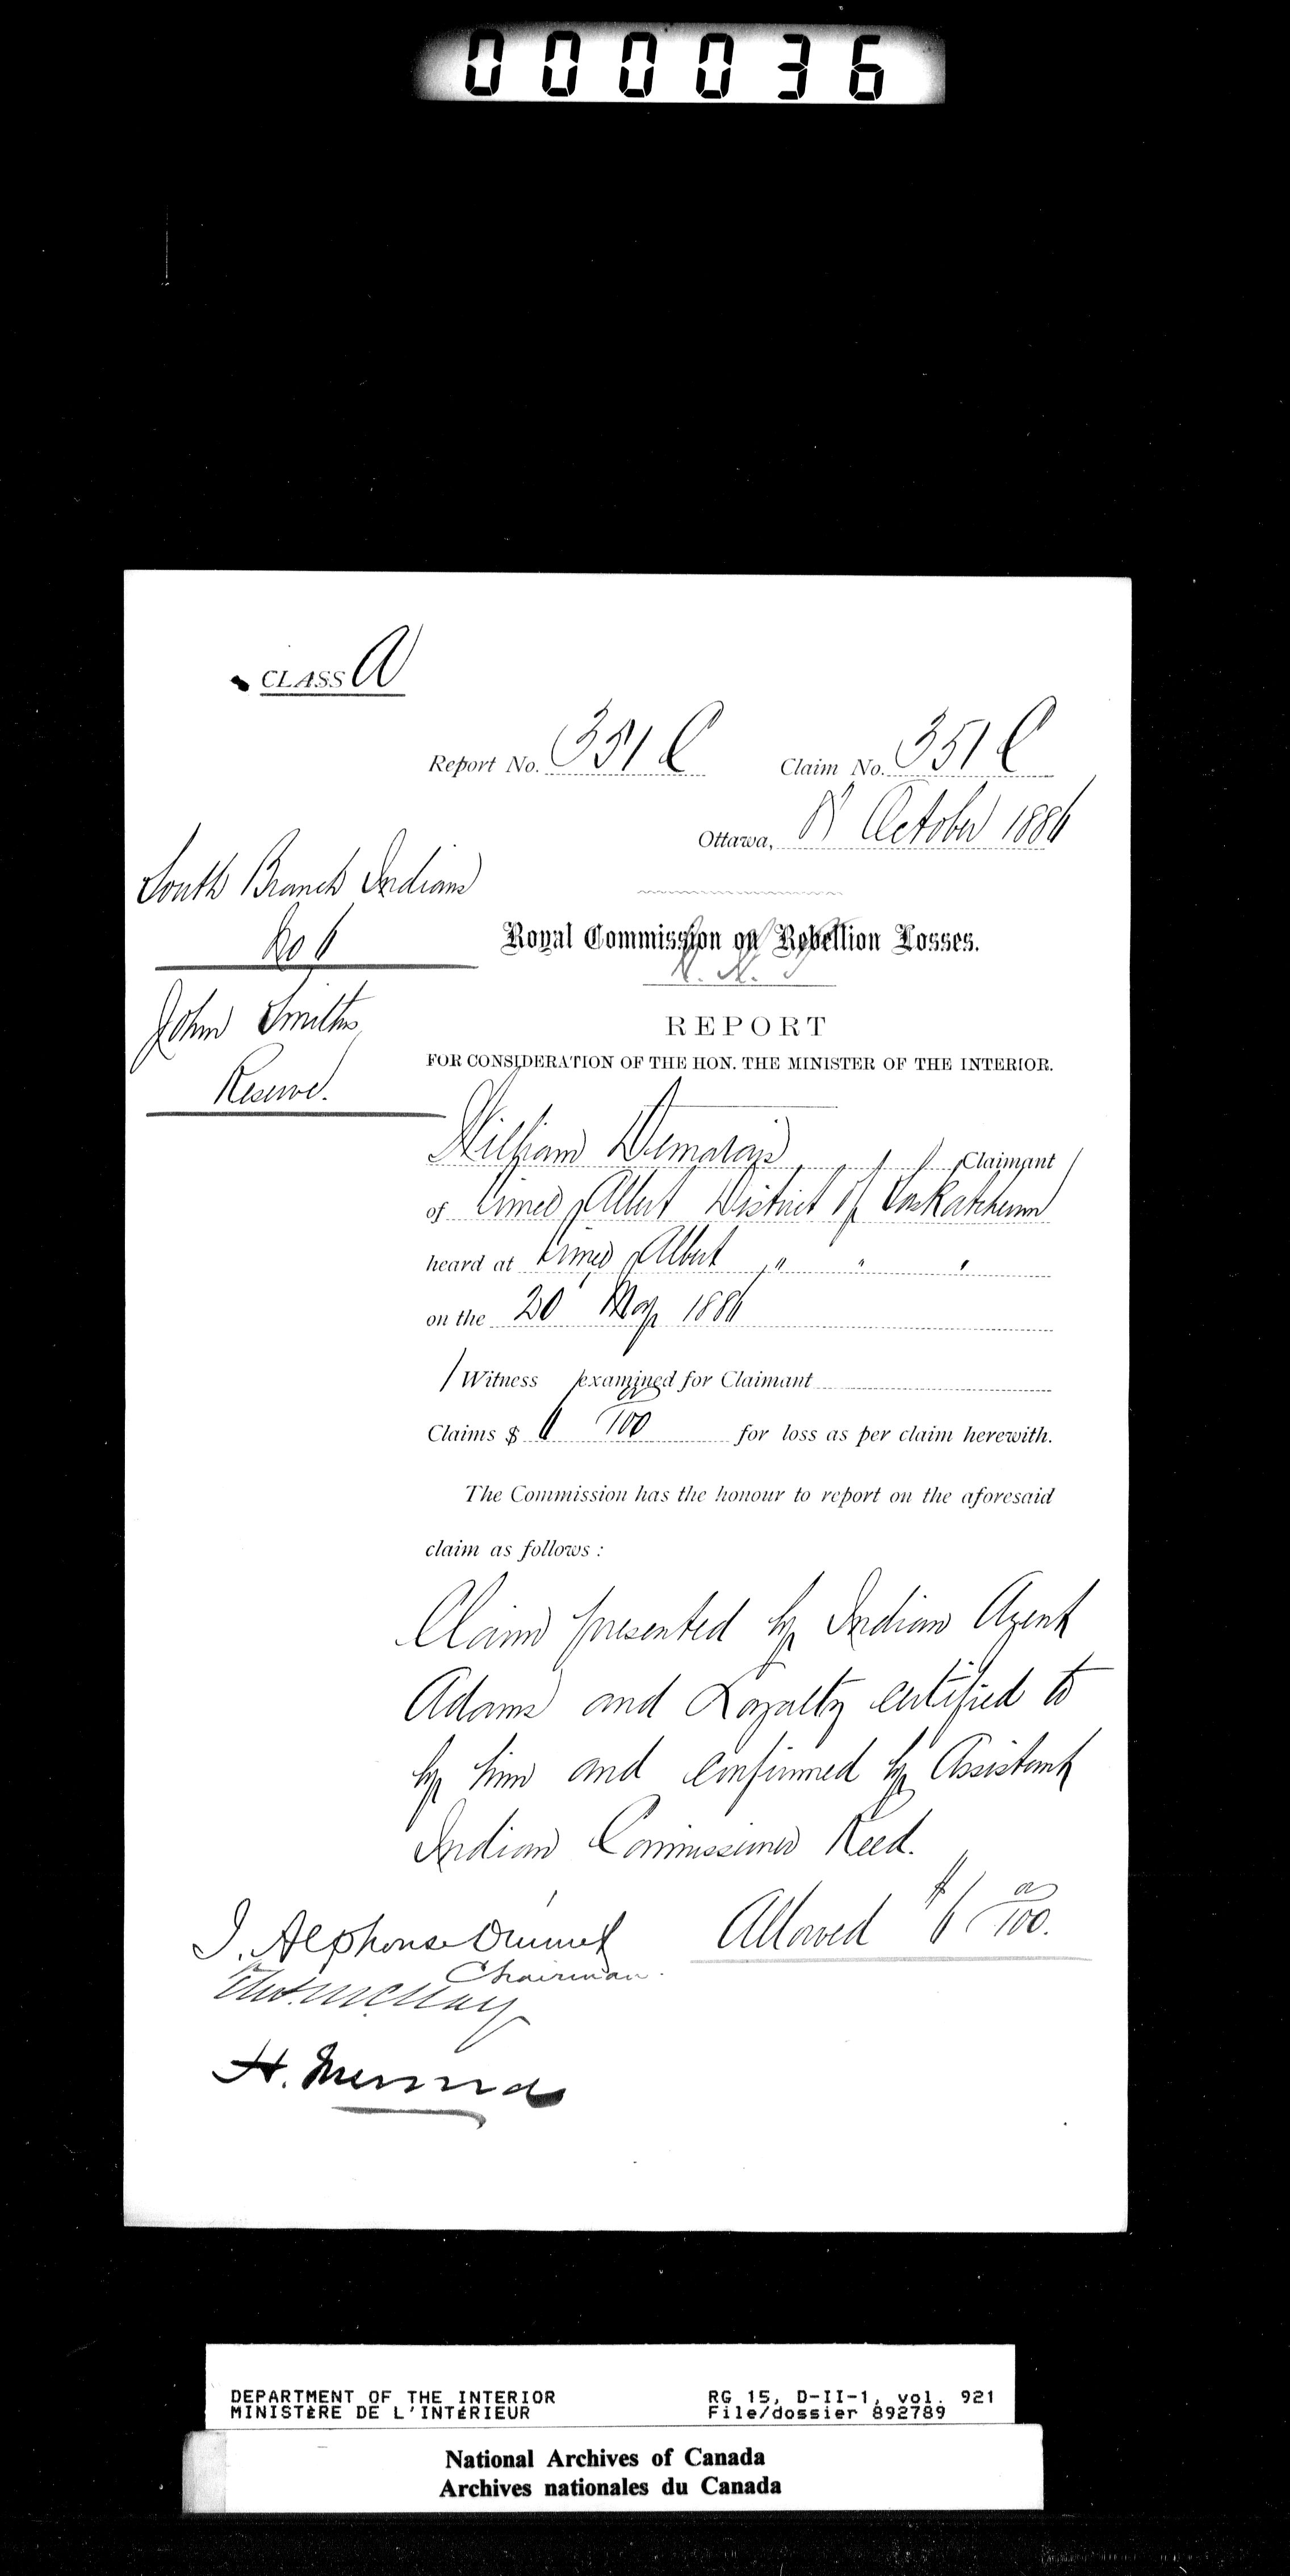 000036
CLASS A
Report No. 351 C Claim No. 351 C
Ottawa, 8' October 1886
South Branch Indians
No 6
John Smiths
Reserve.
Royal Commission on Rebellion Losses.
REPORT
FOR CONSIDERATION OF THE HON. THE MINISTER OF THE INTERIOR.
William Demarais Claimant
of Prince Albert District of Saskatchewan
heard at Prince Albert " " "
on the 20' May 1886
1 Witness examined for Claimant
Claims $ 6 00/100 for loss as per claim herewith.
The Commission has the honour to report on the aforesaid
claim as follows:
Claim presented by Indian Agent
Adams and Loyalty certified to
by him and confirmed by Assistant
Indian Commissioner Reed.
Allowed $6 00/100.
J. Alphonse Ouimet
Chairman.
H. Muma
DEPARTMENT OF THE INTERIOR RG 15, D-II-1, vol. 921
MINISTÈRE DE L'INTÉRIEUR File/dossier 892789
National Archives of Canada
Archives nationales du Canada